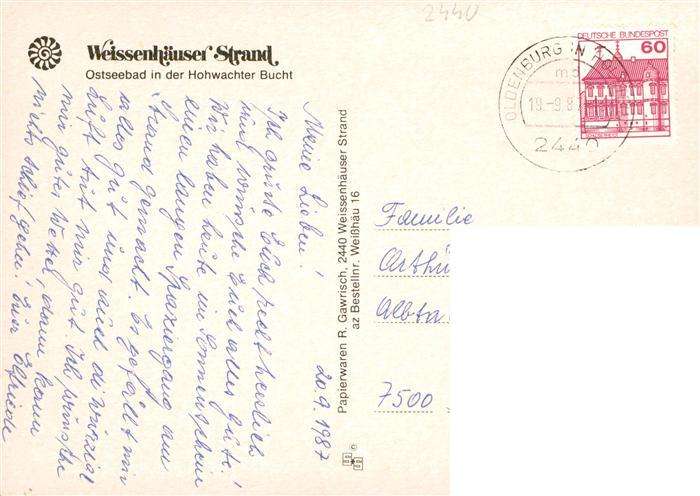 2440
Weissenhäuser Strand
Ostseebad in der Hohwachter Bucht
DEUTSCHE BUNDESPOST
60
OLDENBURG IN HO
mb
19.-9.8
2440
Papierwaren R. Gawrisch, 2440 Weissenhäuser Strand
az Bestellnr. Weißhäu 16
20.9.1987
Meine Lieben!
Ich grüße Euch recht herzlich
und wünsche Euch alles Gute!
Wir haben heute im Sonnenschein
einen langen Spaziergang am
Strand gemacht. Es gefällt mir
alles gut und auch die würzige
Luft tut mir gut. Ich wünsche
mir gutes Wetter, dann kann
nichts schief gehn! Eure Elfriede
Familie
Arthu
Albta
7500